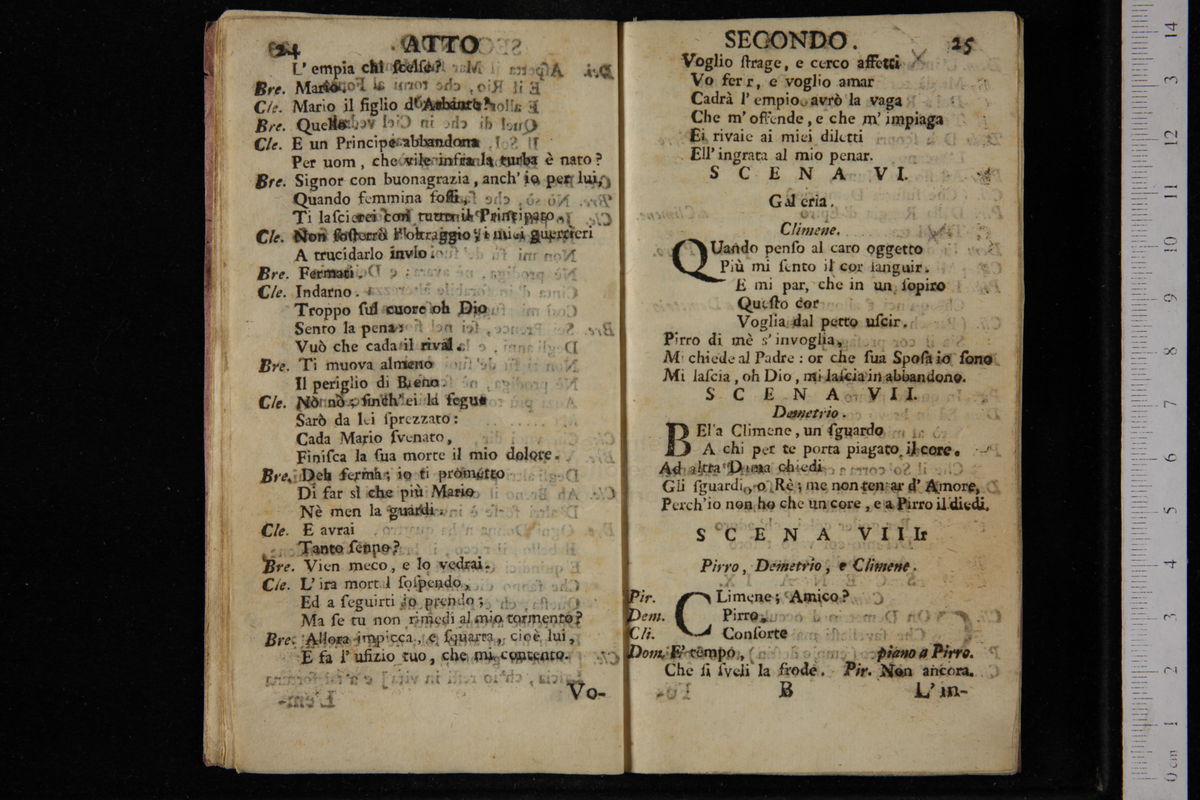 24 ATTO
L' empia chi ſcelſe?
Bre. Mario.
Cle. Mario il figlio d' Arbante?
Bre. Quello
Cle. E un Principe abbandona
Per uom, che vile infra la turba è nato?
Bre. Signor con buonagrazia, anch' io per lui,
Quando femmina foſſi,
Ti laſcierei con tutto il Principato.
Cle. Non ſoffrerò l' oltraggio; i miei guerrieri
A trucidarlo invio.
Bre. Fermati.
Cle. Indarno.
Troppo ſul cuore oh Dio
Sento la pena:
Vuò che cada il rival.
Bre. Ti muova almeno
Il periglio di Breno.
Cle. Nò nò; finch' ei la ſegue
Sarò da lei ſprezzato:
Cada Mario ſvenato,
Finiſca la ſua morte il mio dolore.
Bre. Deh ferma; io ti prometto
Di far sì che più Mario
Nè men la guardi.
Cle. E avrai
Tanto ſenno?
Bre. Vien meco, e lo vedrai.
Cle. L' ira mortal ſoſpendo,
Ed a ſeguirti io prendo;
Ma ſe tu non rimedi al mio tormento?
Bre. Allora impicca, e ſquarta, cioè lui,
E fa l' ufizio tuo, che mi contento.
Vo-
SECONDO. 25
Voglio ſtrage, e cerco affetti
Vo fer r, e voglio amar
Cadrà l' empio avrò la vaga
Che m' offende, e che m' impiaga
Ei rivale ai miei diletti
Ell' ingrata al mio penar.
SCENA VI.
Galleria.
Climene.
QUando penſo al caro oggetto
Più mi ſento il cor languir.
E mi par, che in un ſoſpiro
Queſto cor
Voglia dal petto uſcir.
Pirro di mè s' invoglia,
Mi chiede al Padre: or che ſua Spoſa io ſono
Mi laſcia, oh Dio, mi laſcia in abbandono.
SCENA VII.
Demetrio.
BElla Climene, un ſguardo
A chi per te porta piagato il core.
Ad altra Dama chiedi
Gli ſguardi, o Rè; me non tentar d' Amore,
Perch' io non ho che un core, e a Pirro il diedi.
SCENA VIII
Pirro, Demetrio, e Climene.
Pir. CLimene; Amico?
Dem. Pirro.
Cli. Conſorte
Dom. E' tempo, piano a Pirro.
Che ſi ſveli la frode. Pir. Non ancora.
B L' in-